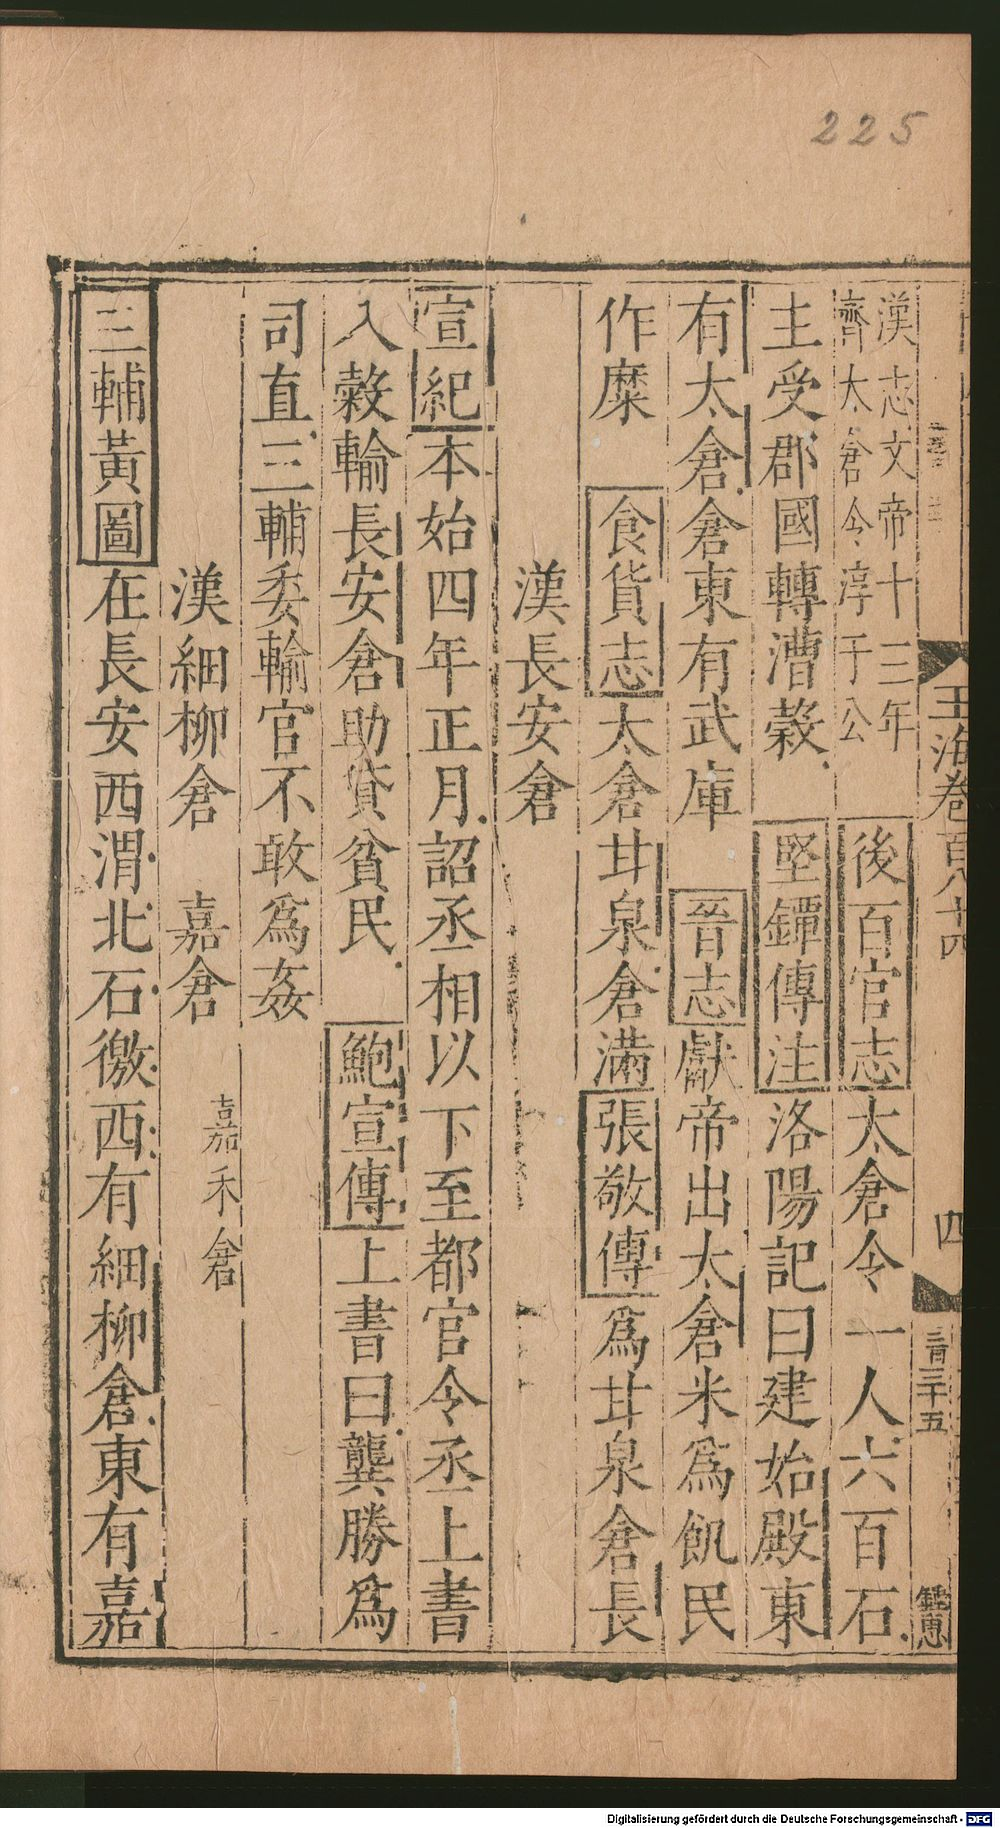 225
玉海卷百八十四
四
三百三十五
漢志文帝十三年
齊太倉令淳于公
後百官志太倉令一人六百石
主受郡國轉漕穀堅鐔傳注洛陽記曰建始殿東
有太倉倉東有武庫晉志獻帝出太倉米爲飢民
作糜食貨志太倉甘泉倉滿張敞傳爲甘泉倉長
漢長安倉
宣紀本始四年正月詔丞相以下至都官令丞上書
入穀輸長安倉助貸貧民鮑宣傳上書曰龔勝爲
司直三輔委輸官不敢爲姦
漢細柳倉 嘉倉 嘉禾倉
三輔黃圖在長安西渭北石徼西有細柳倉東有嘉
Digitalisierung gefördert durch die Deutsche Forschungsgemeinschaft - DFG